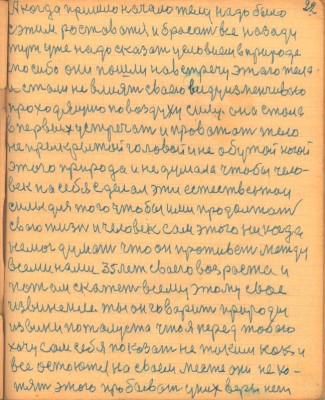 22
А когда пришло начало телу надо было
с этим роставатся и бросать все назаду
тут уже надо сказать условием в природе
по себе они пошли навстречу этого тела
и стали не влиять своею видуизменчиваю
проходящию по воздуху силу она стала
в первых устречат и проважат тело
не прикрытой головой и не обутой ногой
этого природа и недумала чтобы чело-
век на себе сделал эти естественнаи
силы для того чтобы ими продолжат
свою жизнь и человек сам этого никогда
немог думать что он проживет между
всеми нами 35 лет своего возраста и
потом скажет всему этому свое
извинение ты он говорит природа
извини пожалуста что я перед тобою
хочу сам себя показат не таким как и
все остоются на своем месте они не хо-
тят этого пробоват у них веры нет